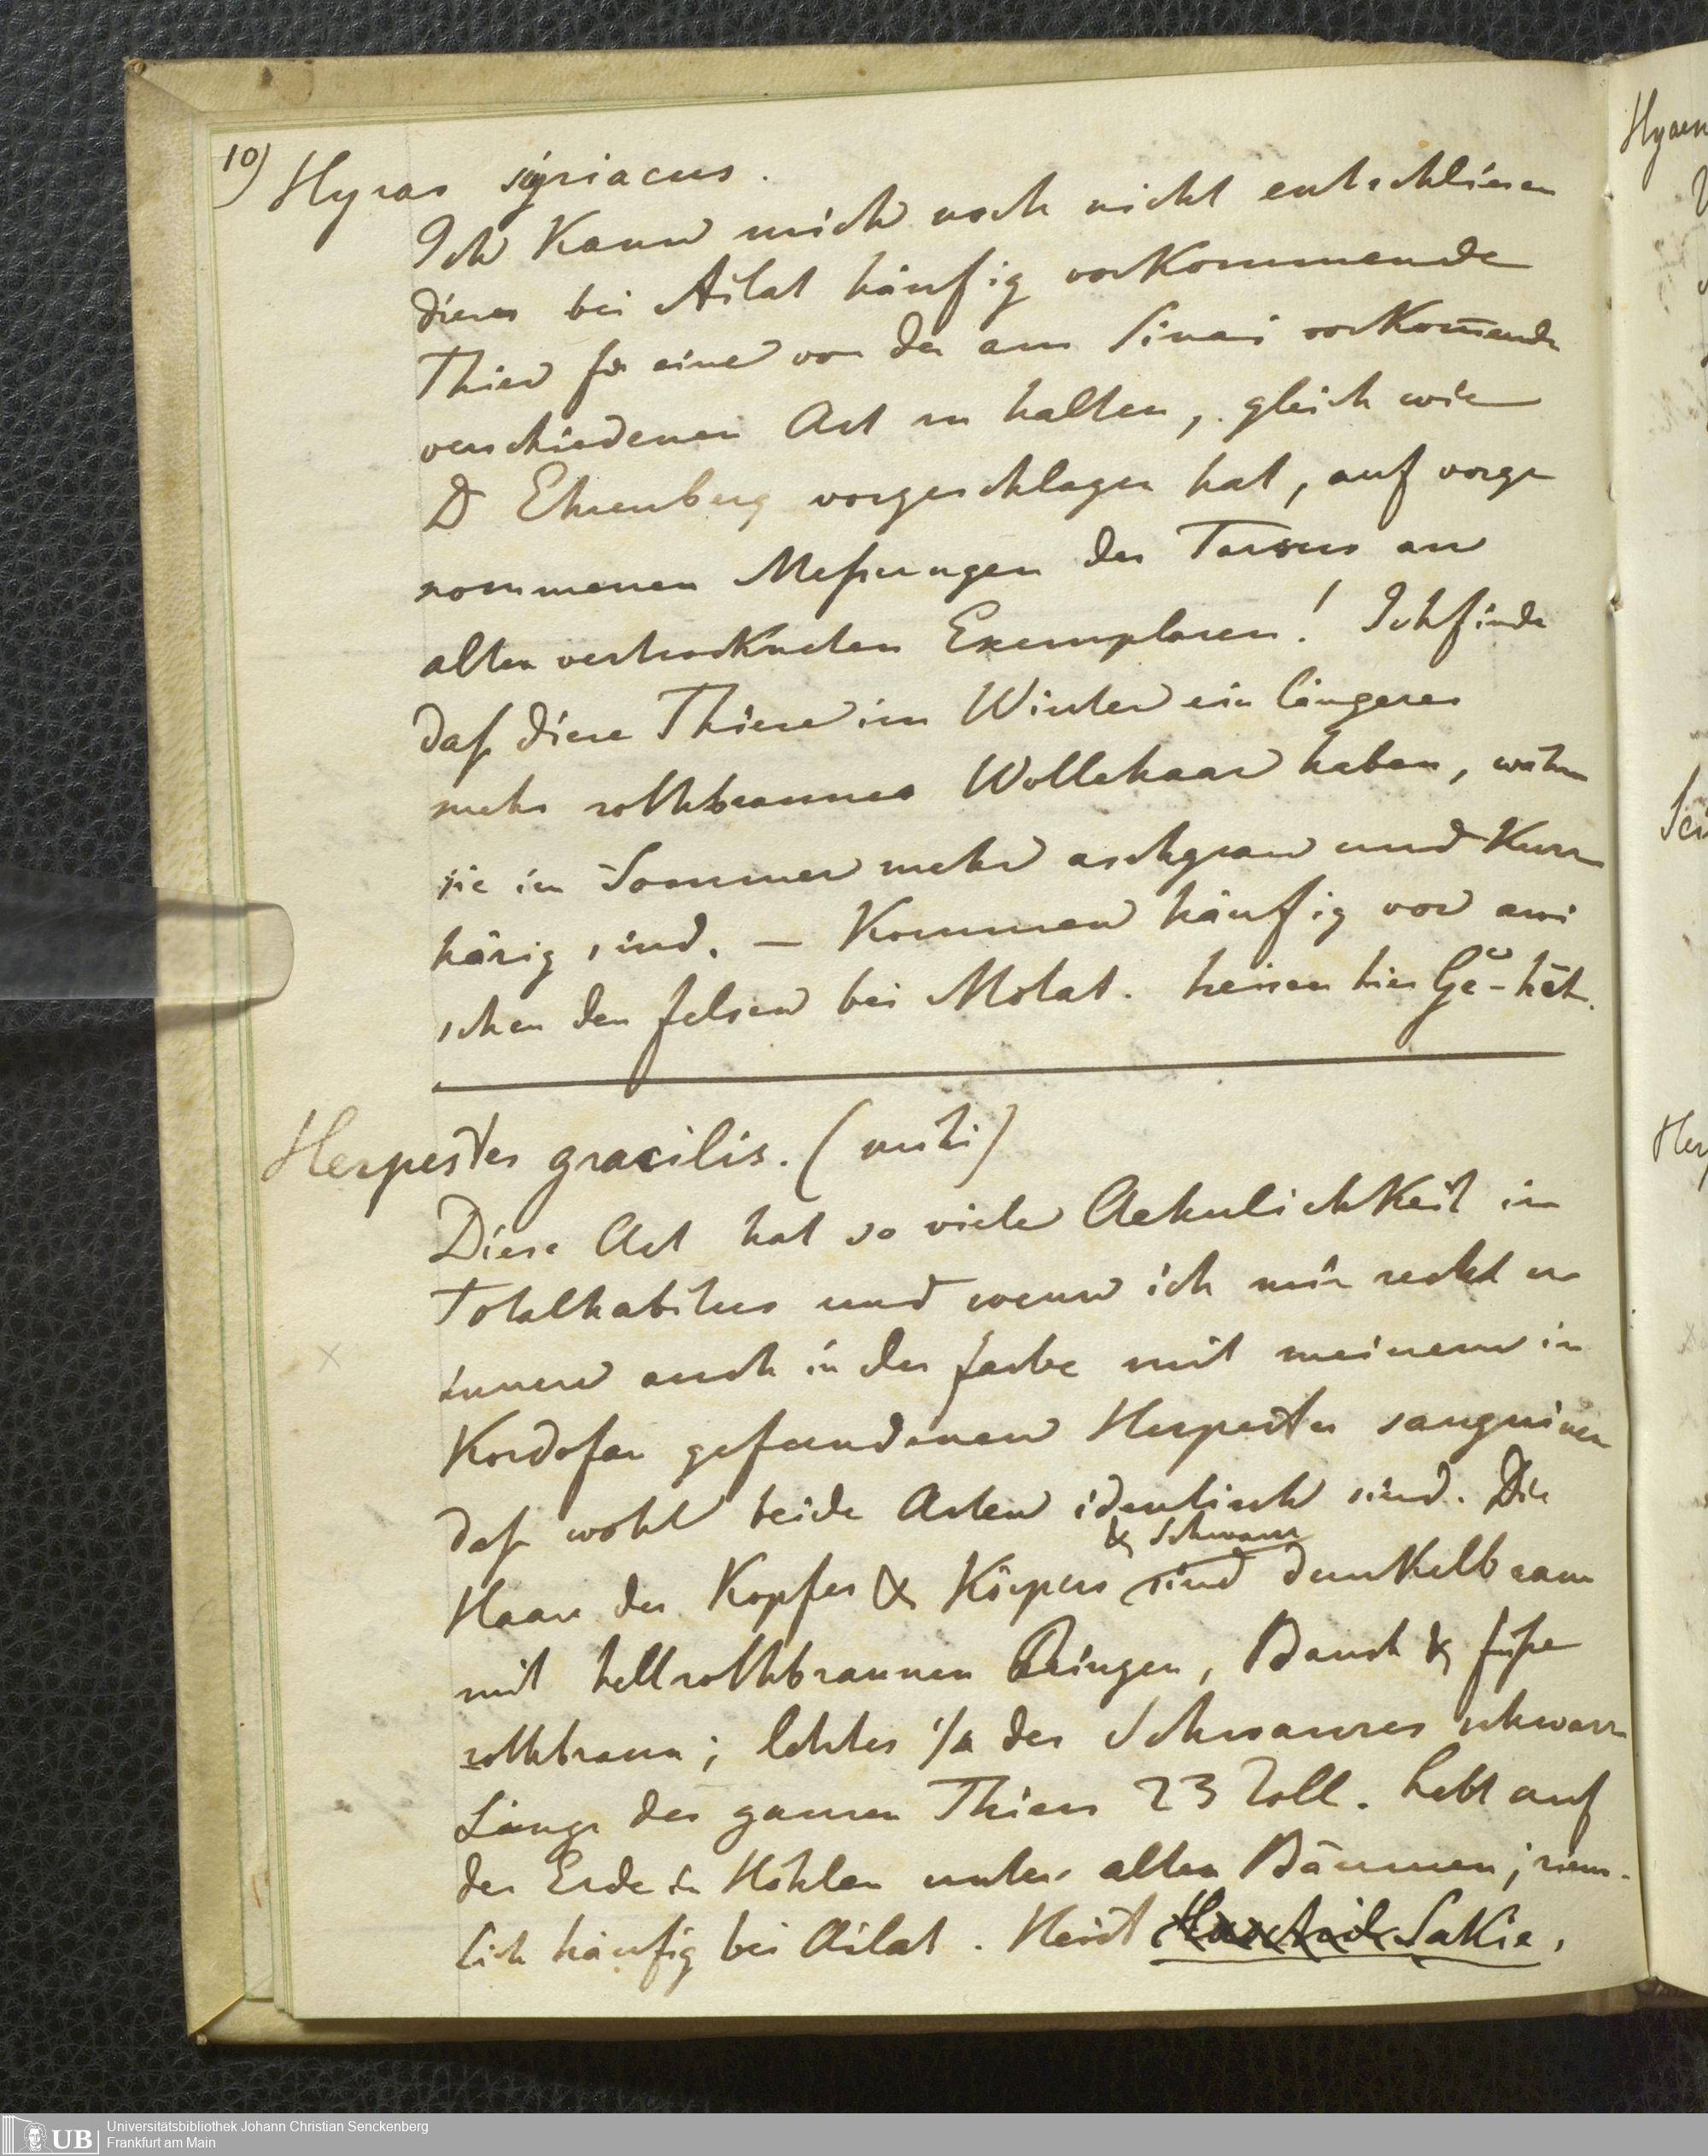 10) Hyrax syriacus.
Ich Kann mich noch nicht entschliesen
dieses bei Ailat häufig vorKommende
Thier für eine von der am Sinai vorKom̄ende
verschiedenen Art zu halten, gleich wie
D Ehrenberg vorgeschlagen hat, auf vorge
nommenen Meßungen des Tarsus an
alten vertrockneten Exemplaren! Ich finde
daß diese Thiere im Winter ein längeres
mehr rothbraunes Wollehaar haben, währen
sie im Sommer mehr aschgrau und Kurz
härig sind. – Kommen häufig vor zwi
schen den felsen bei Molat. heisen hier Gĕ-hĕh.
Herpestes gracilis. (mihi)
Diese Art hat so viele AehnlichKeit im
Totalhabitus und wenn ich mir recht er
innere auch in der farbe mit meinem in
Kordofan gefundenen Herpestes sanguineu
daß wohl beide Arten identisch sind. Die
& Schwanz
Haare des Kopfes & Körpers sind dunKelbraun
mit hellrothbraunen Ringen, Bauch & füße
rothbraun; letztes 1/4 des Schwanzes schwarz
Länge des ganzen Thiers 23 Zoll. Lebt auf
der Erde in Höhlen unter alten Bäumen; ziem-
lich häufig bei Ailat. Heist SaKie.
Hyaen
Her
Universitätsbibliothek Johann Christian Senckenberg
UB
Frankfurt am Main